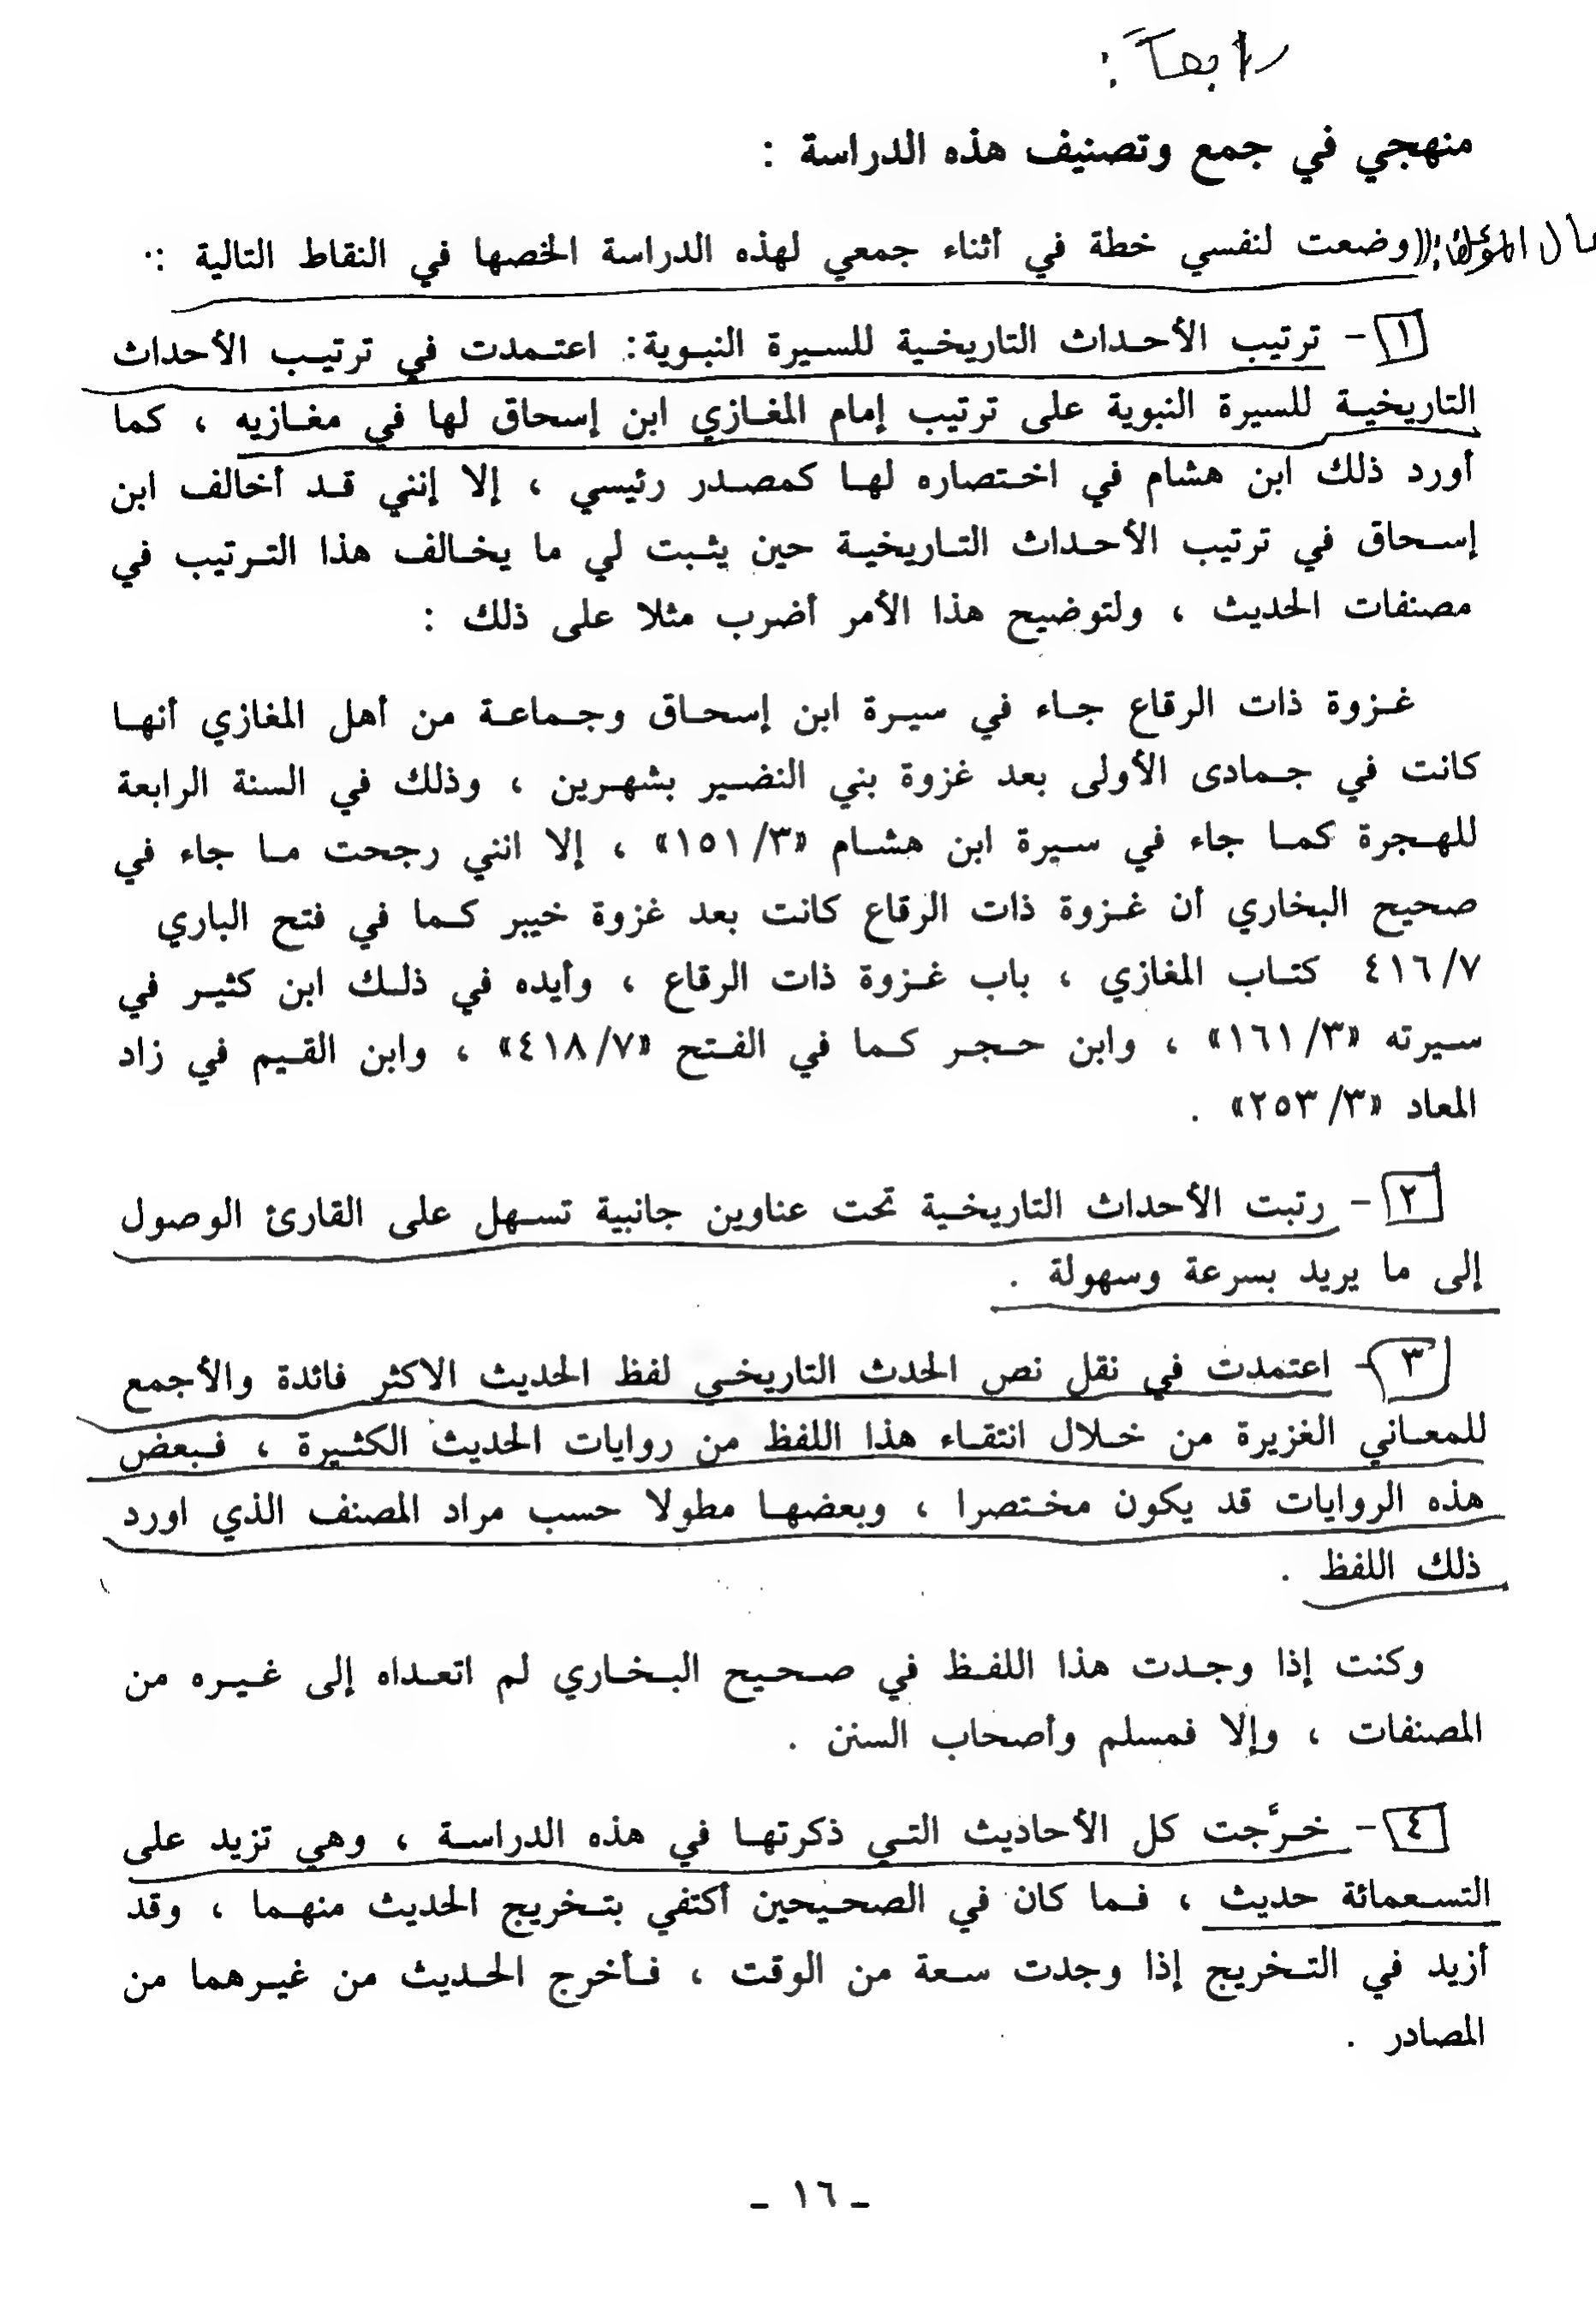 رابعاً :
منهجي في جمع وتصنيف هذه الدراسة :
قال المؤلف: ((وضعت لنفسي خطة في أثناء جمعي لهذه الدراسة الخصها في النقاط التالية :
١- ترتيب الأحداث التاريخية للسيرة النبوية: اعتمدت في ترتيب الأحداث
التاريخية للسيرة النبوية على ترتيب إمام المغازي ابن إسحاق لها في مغازيه ، كما
أورد ذلك ابن هشام في اختصاره لها كمصدر رئيسي ، إلا إنني قد أخالف ابن
إسحاق في ترتيب الأحداث التاريخية حين يثبت لي ما يخالف هذا الترتيب في
مصنفات الحديث ، ولتوضيح هذا الأمر أضرب مثلا على ذلك :
غزوة ذات الرقاع جاء في سيرة ابن إسحاق وجماعة من أهل المغازي أنها
كانت في جمادى الأولى بعد غزوة بني النضير بشهرين ، وذلك في السنة الرابعة
للهجرة كما جاء في سيرة ابن هشام «٣/١٥١» ، إلا انني رجحت ما جاء في
صحيح البخاري أن غزوة ذات الرقاع كانت بعد غزوة خيبر كما في فتح الباري
٧/٤١٦ كتاب المغازي ، باب غزوة ذات الرقاع ، وأيده في ذلك ابن كثير في
سيرته «٣/١٦١» ، وابن حجر كما في الفتح «٧/٤١٨» ، وابن القيم في زاد
المعاد «٣/٢٥٣» .
٢- رتبت الأحداث التاريخية تحت عناوين جانبية تسهل على القارئ الوصول
إلى ما يريد بسرعة وسهولة .
٣- اعتمدت في نقل نص الحدث التاريخي لفظ الحديث الاكثر فائدة والأجمع
للمعاني الغزيرة من خلال انتقاء هذا اللفظ من روايات الحديث الكثيرة ، فبعض
هذه الروايات قد يكون مختصرا ، وبعضها مطولا حسب مراد المصنف الذي اورد
ذلك اللفظ .
وكنت إذا وجدت هذا اللفظ في صحيح البخاري لم اتعداه إلى غيره من
المصنفات ، وإلا فمسلم وأصحاب السنن .
٤- خرَّجت كل الأحاديث التي ذكرتها في هذه الدراسة ، وهي تزيد على
التسعمائة حديث ، فما كان في الصحيحين أكتفي بتخريج الحديث منهما ، وقد
أزيد في التخريج إذا وجدت سعة من الوقت ، فأخرج الحديث من غيرهما من
المصادر .
ـ ١٦ ـ